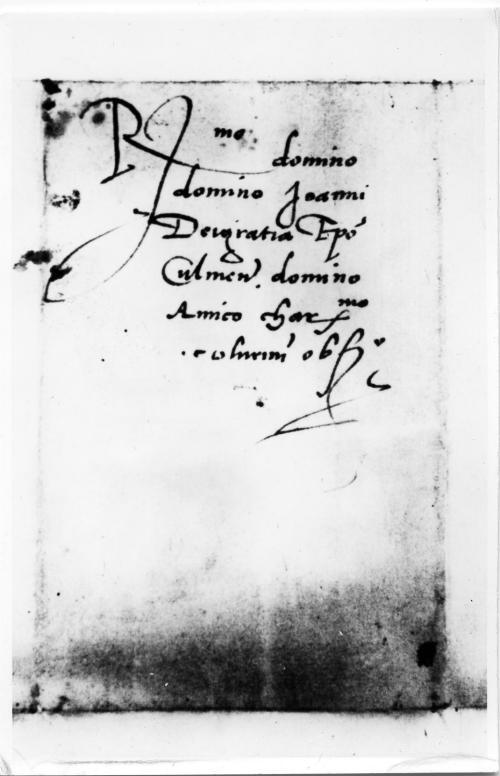 R mo domino
domino Joanni
Dei gratia Epo
Culmen. domino
Amico char mo
et